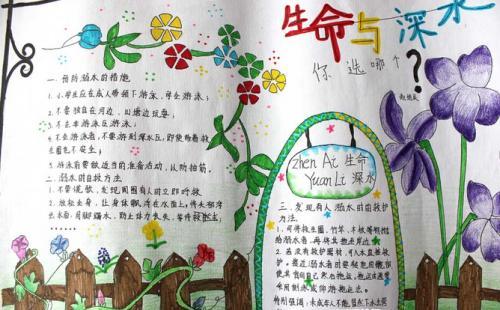 生命与深水
你选哪个?
一.预防溺水的措施
1.小学生应在成人带领下游泳,学会游泳;
2.不要独自在河边、山塘边玩耍;
3.不去非游泳区游泳;
4.不会游泳者,不要游到深水区,即使带着救
生圈也不安全;
5.游泳前要做适当的准备活动,以防抽筋。
二.溺水的自救方法
1.不要慌张,发现周围有人时立即呼救
2.放松全身,让身体飘浮在水面上,将头部浮
出水面,用脚踢水,防止体力丧失,等待救援;
zhen Ai 生命
Yuan Li 深水
三.发现有人溺水的救护
方法.
1.可将救生圈、竹竿、木板等物抛
给溺水者,再将其拖至岸边;
2.若没有救护器材,可入水直接救